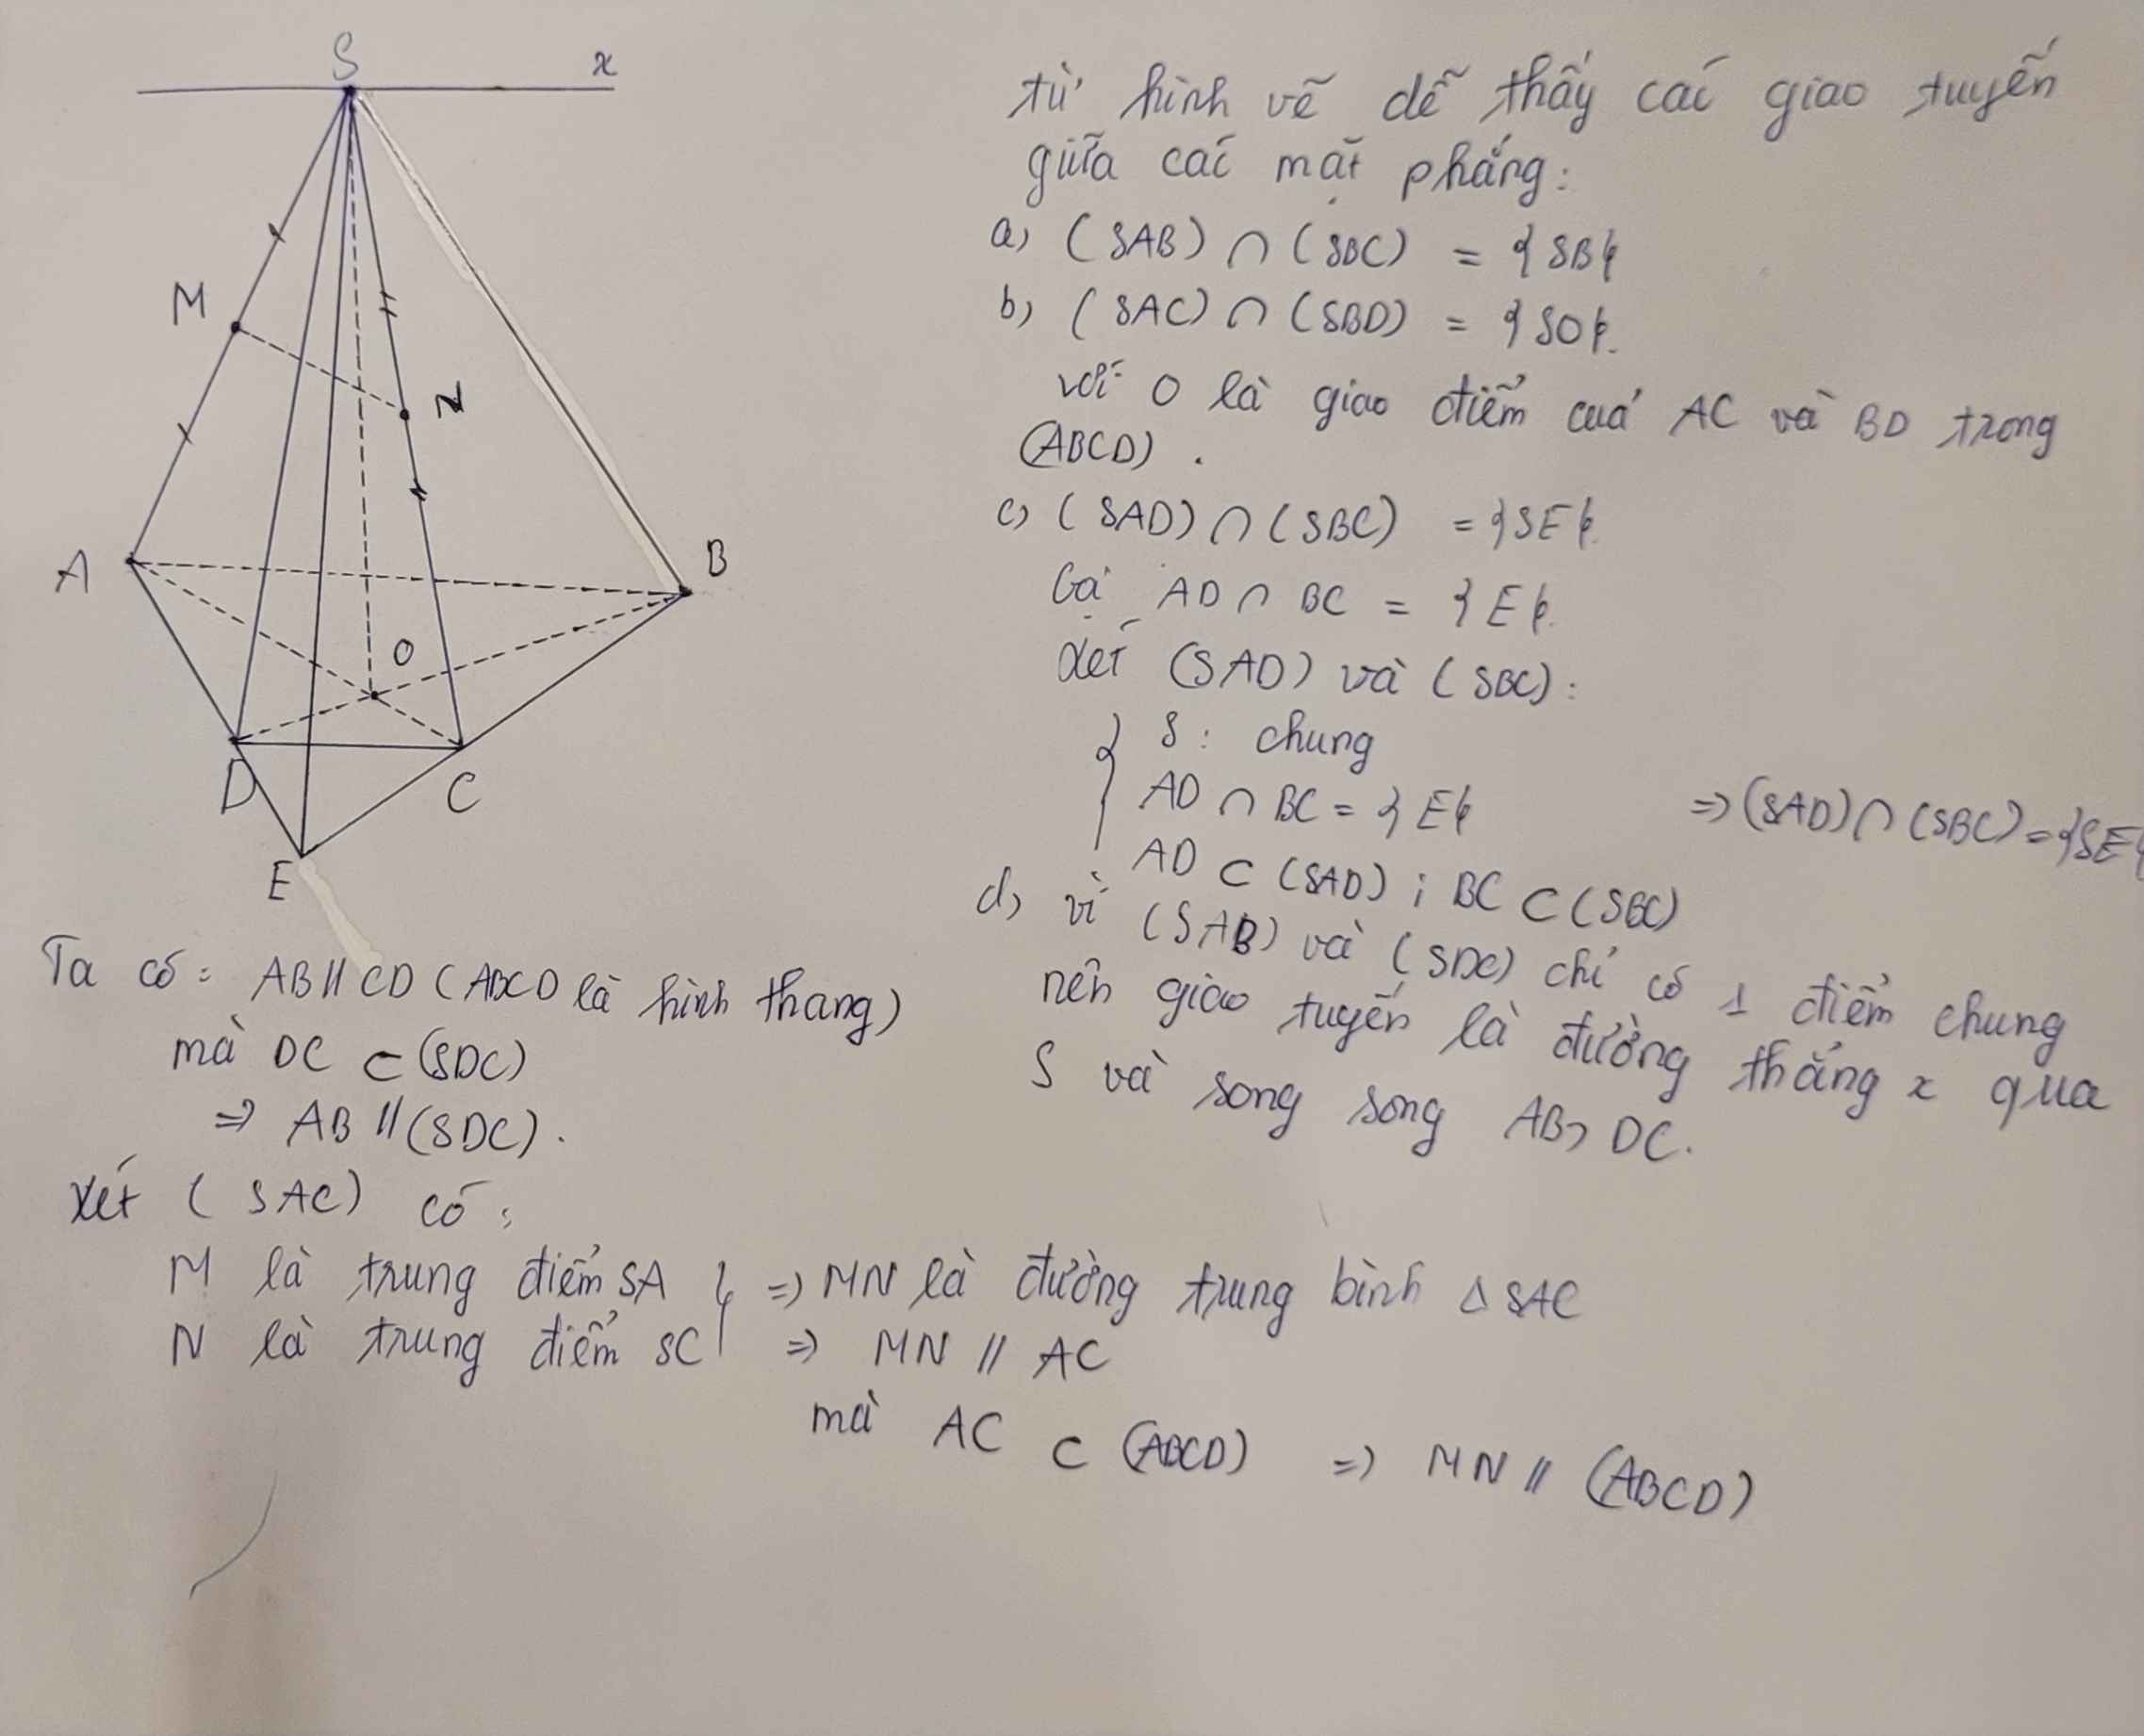 S
x
M
N
A
B
O
D
C
E
từ hình vẽ dễ thấy các giao tuyến
giữa các mặt phẳng:
a) (SAB) ∩ (SBC) = {SB}
b) (SAC) ∩ (SBD) = {SO}.
với O là giao điểm của AC và BD trong
(ABCD).
c) (SAD) ∩ (SBC) = {SE}.
Gọi AD ∩ BC = {E}.
Xét (SAD) và (SBC):
{ S: chung
AD ∩ BC = {E} => (SAD) ∩ (SBC) = {SE}
AD ⊂ (SAD) ; BC ⊂ (SBC)
d) vì (SAB) và (SDC) chỉ có 1 điểm chung
nên giao tuyến là đường thẳng x qua
S và song song AB, DC.
Ta có: AB // CD (ABCD là hình thang)
mà DC ⊂ (SDC)
=> AB // (SDC).
Xét (SAC) có:
M là trung điểm SA } => MN là đường trung bình Δ SAC
N là trung điểm SC => MN // AC
mà AC ⊂ (ABCD) => MN // (ABCD)